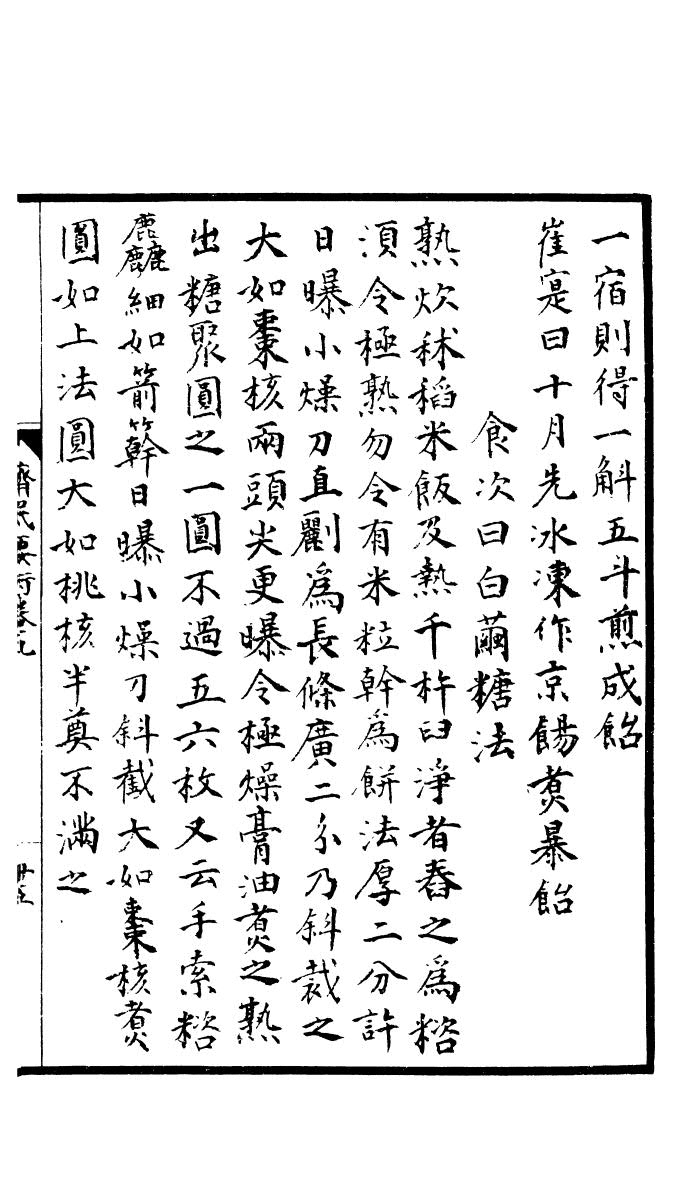 一宿則得一斛五斗煎成飴
崔寔曰十月先冰凍作京餳煑暴飴
食次曰白繭糖法
熟炊秫稻米飯及熱千杵臼淨者舂之爲糌
湏令極熟勿令有米粒幹爲餅法厚二分許
日曝小燥刀直劚爲長條廣二分乃斜裁之
大如棗核兩頭尖更曝令極燥膏油煑之熟
出糖聚圓之一圓不過五六枚又云手索糌
麤細如箭簳日曝小燥刀斜截大如棗核煑
圓如上法圓大如桃核半奠不滿之
齊民要術卷九